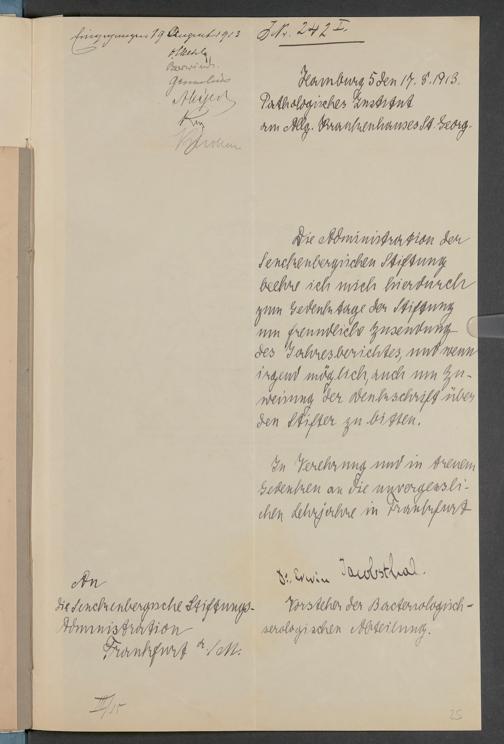 Eingegangen 19 August 1913
J.Nr. 242 I.
Hamburg 5 den 17. 8. 1913.
Pathologisches Institut
am Allg. Krankenhauses St. Georg.
Die Administration der
Senckenbergischen Stiftung
beehre ich mich hierdurch
zum Gedenktage der Stiftung
um freundliche Zusendung
des Jahresberichtes, und wenn
irgend möglich, auch um Zu-
weisung der Denkschrift über
den Stifter zu bitten.
In Verehrung und in treuem
Gedenken an die unvergessli-
chen Lehrjahre in Frankfurt
Dr. Erwin Jacobsthal.
Vorsteher der Bacteriologisch-
serologischen Abteilung.
An
die Senckenbergische Stiftungs-
Administration
Frankfurt a/M.
III/15
25